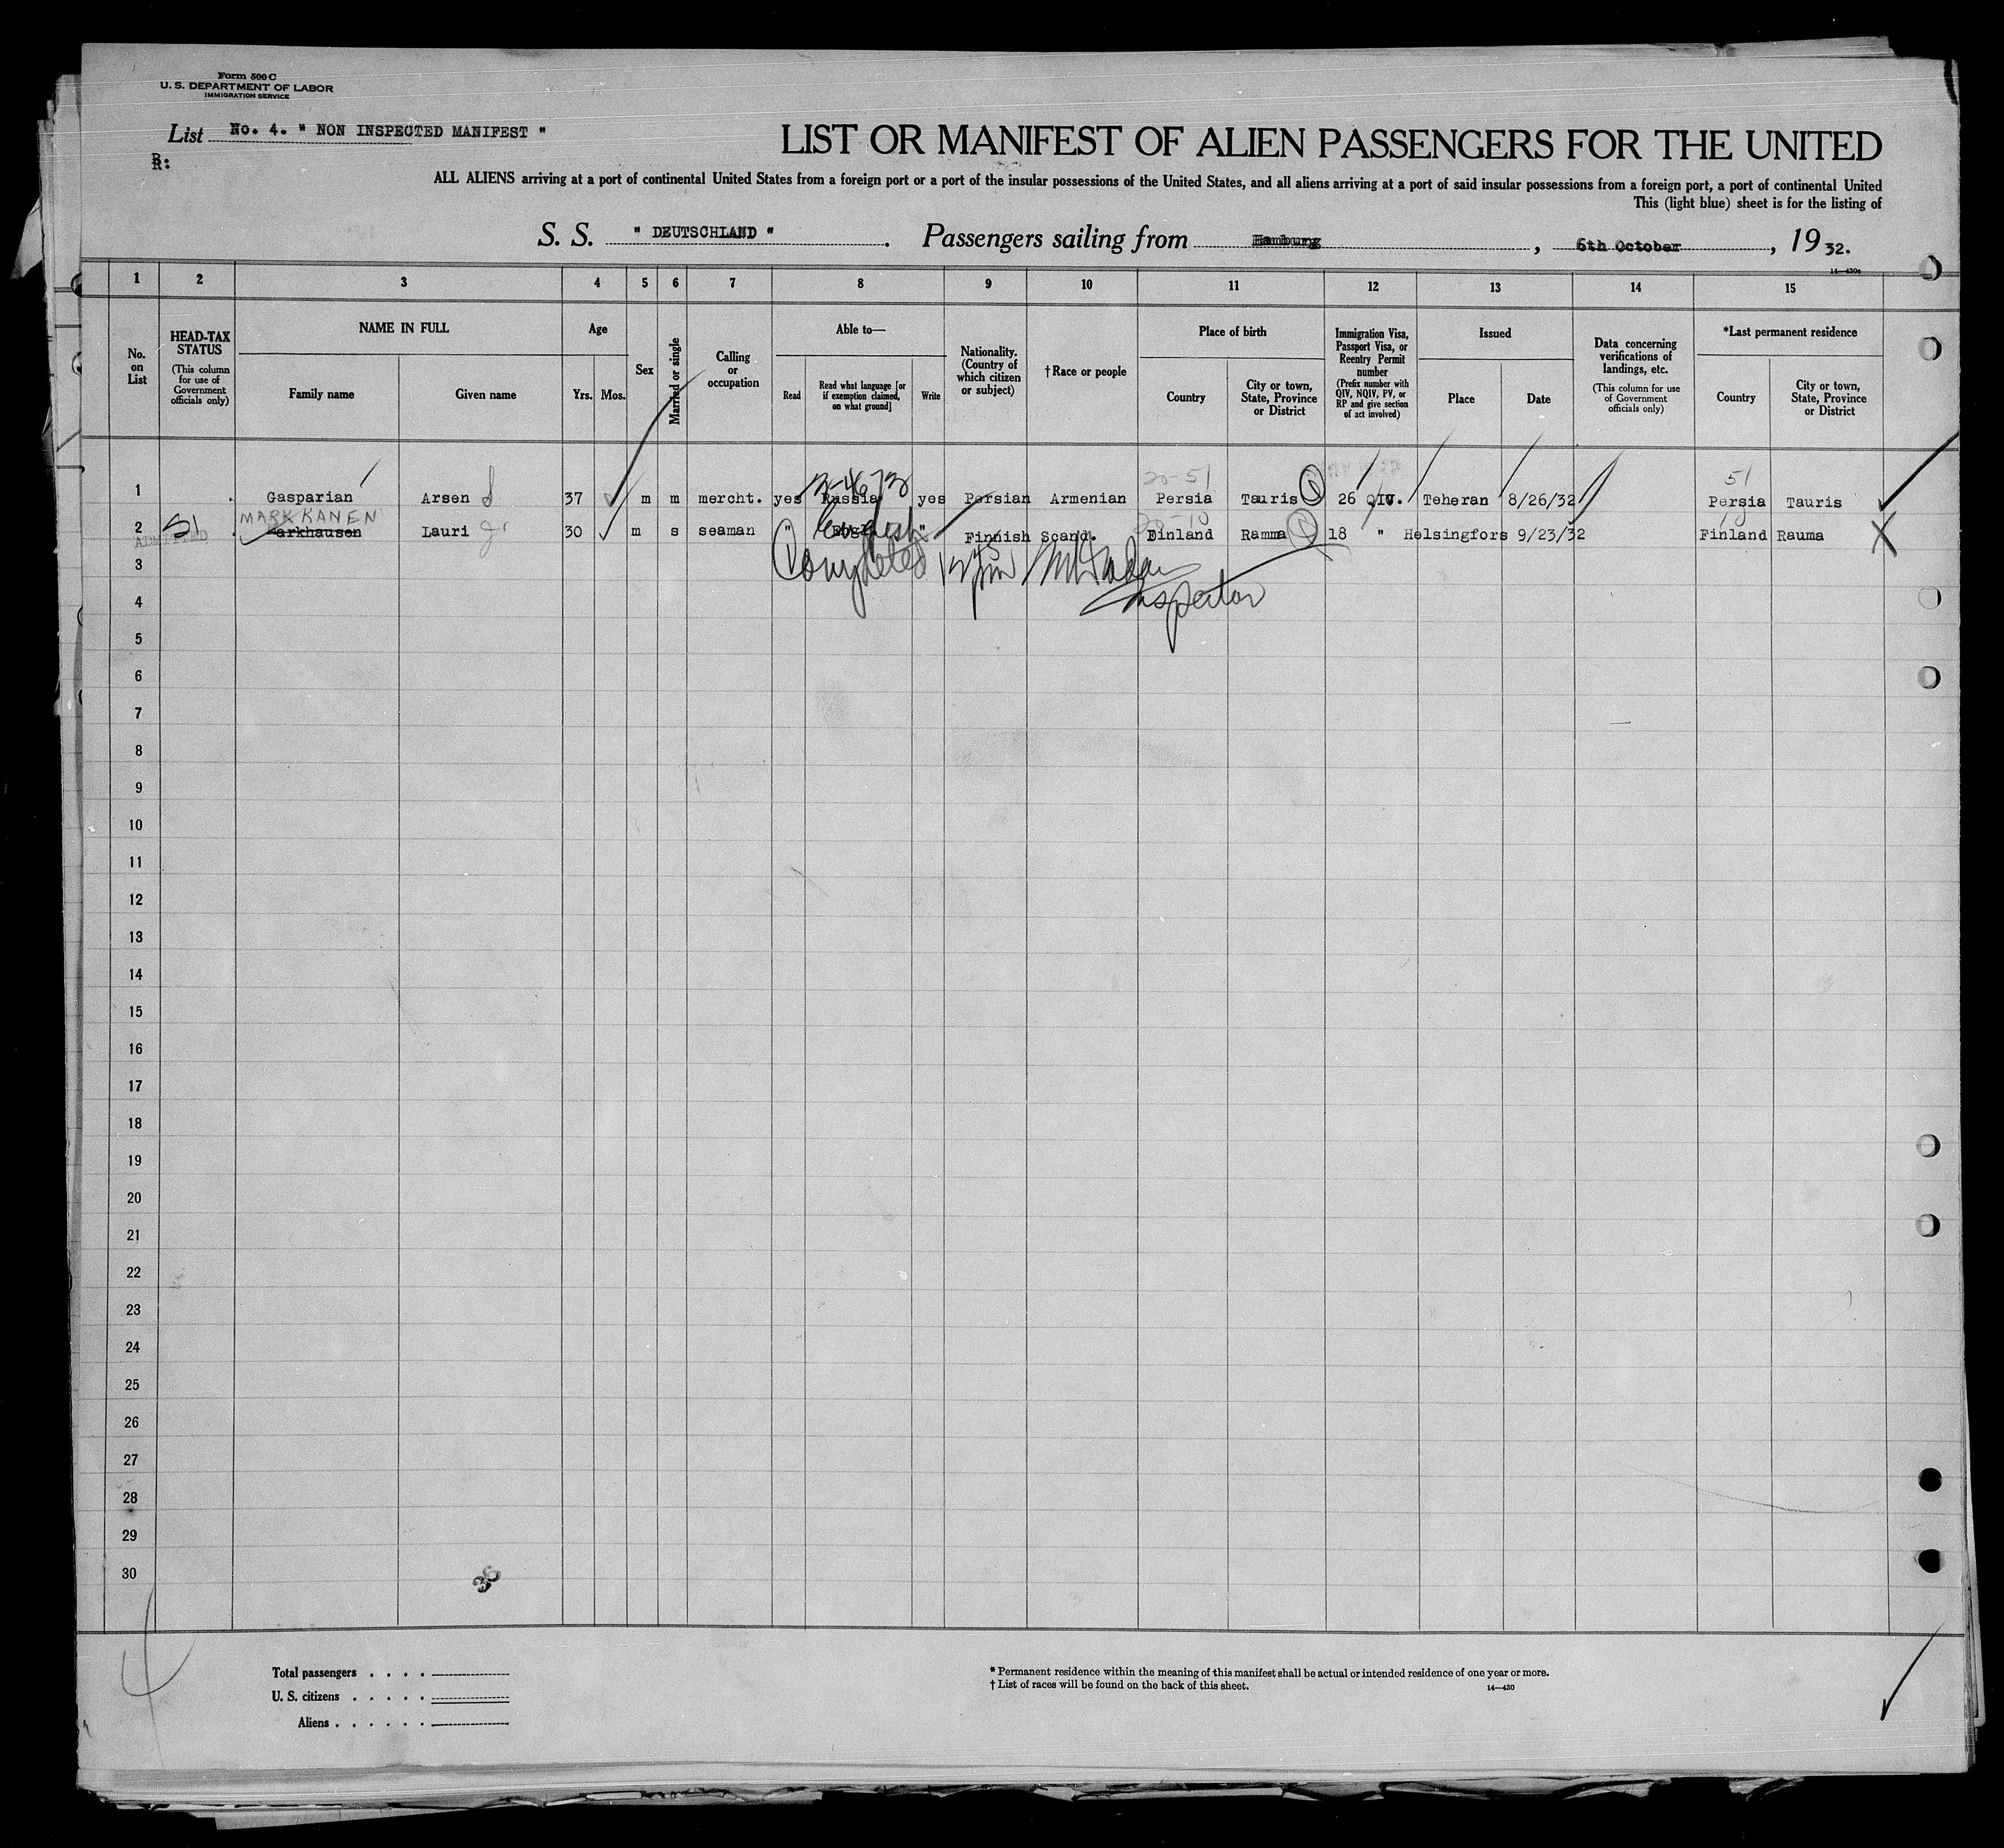 Form 500 C
U. S. DEPARTMENT OF LABOR
IMMIGRATION SERVICE
List No. 4. " NON INSPECTED MANIFEST "
LIST OR MANIFEST OF ALIEN PASSENGERS FOR THE UNITED
ALL ALIENS arriving at a port of continental United States from a foreign port or a port of the insular possessions of the United States, and all aliens arriving at a port of said insular possessions from a foreign port, a port of continental United
This (light blue) sheet is for the listing of
S. S. " DEUTSCHLAND " . Passengers sailing from Hamburg , 6th October , 19 32.
14—430a
1 2 3 4 5 6 7 8 9 10 11 12 13 14 15
No. on List
HEAD-TAX STATUS
(This column for use of Government officials only)
NAME IN FULL
Family name
Given name
Age
Yrs. Mos.
Sex
Married or single
Calling or occupation
Able to—
Read
Read what language [or if exemption claimed, on what ground]
Write
Nationality. (Country of which citizen or subject)
† Race or people
Place of birth
Country
City or town, State, Province or District
Immigration Visa, Passport Visa, or Reentry Permit number
(Prefix number with QIV, NQIV, PV, or RP and give section of act involved)
Issued
Place
Date
Data concerning verifications of landings, etc.
(This column for use of Government officials only)
*Last permanent residence
Country
City or town, State, Province or District
3-4673
20-51
51
1 Gasparian Arsen 37 m m mercht. yes Russia yes Persian Armenian Persia Tauris 26 QIV. Teheran 8/26/32 Persia Tauris
MARKKANEN
English
10
2 SI ADMITTED Markhausen Lauri 30 m s seaman " Engl " Finnish Scand. Finland Ramma 18 " Helsingfors 9/23/32 Finland Rauma
Completed
Inspector
3
4
5
6
7
8
9
10
11
12
13
14
15
16
17
18
19
20
21
22
23
24
25
26
27
28
29
30
Total passengers . . . .
U. S. citizens . . . . .
Aliens . . . . . .
* Permanent residence within the meaning of this manifest shall be actual or intended residence of one year or more.
† List of races will be found on the back of this sheet.
14—430